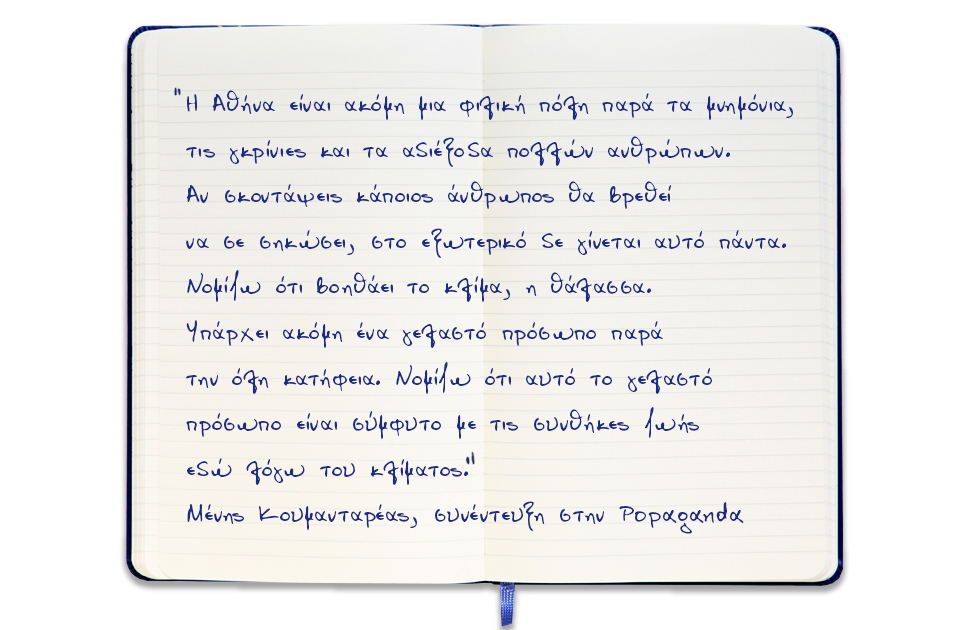 "Η Αθήνα είναι ακόμη μια φιλική πόλη παρά τα μνημόνια,
τις γκρίνιες και τα αδιέξοδα πολλών ανθρώπων.
Αν σκοντάψεις κάποιος άνθρωπος θα βρεθεί
να σε σηκώσει, στο εξωτερικό δε γίνεται αυτό πάντα.
Νομίζω ότι βοηθάει το κλίμα, η θάλασσα.
Υπάρχει ακόμη ένα γελαστό πρόσωπο παρά
την όλη κατήφεια. Νομίζω ότι αυτό το γελαστό
πρόσωπο είναι σύμφυτο με τις συνθήκες ζωής
εδώ λόγω του κλίματος."
Μένης Κουμανταρέας, συνέντευξη στην Popaganda